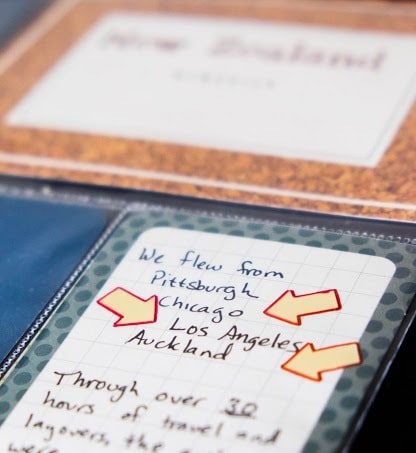 New Zealand
We flew from
Pittsburgh
Chicago
Los Angeles
Auckland
Through over 30
hours of travel and
layovers, the
were